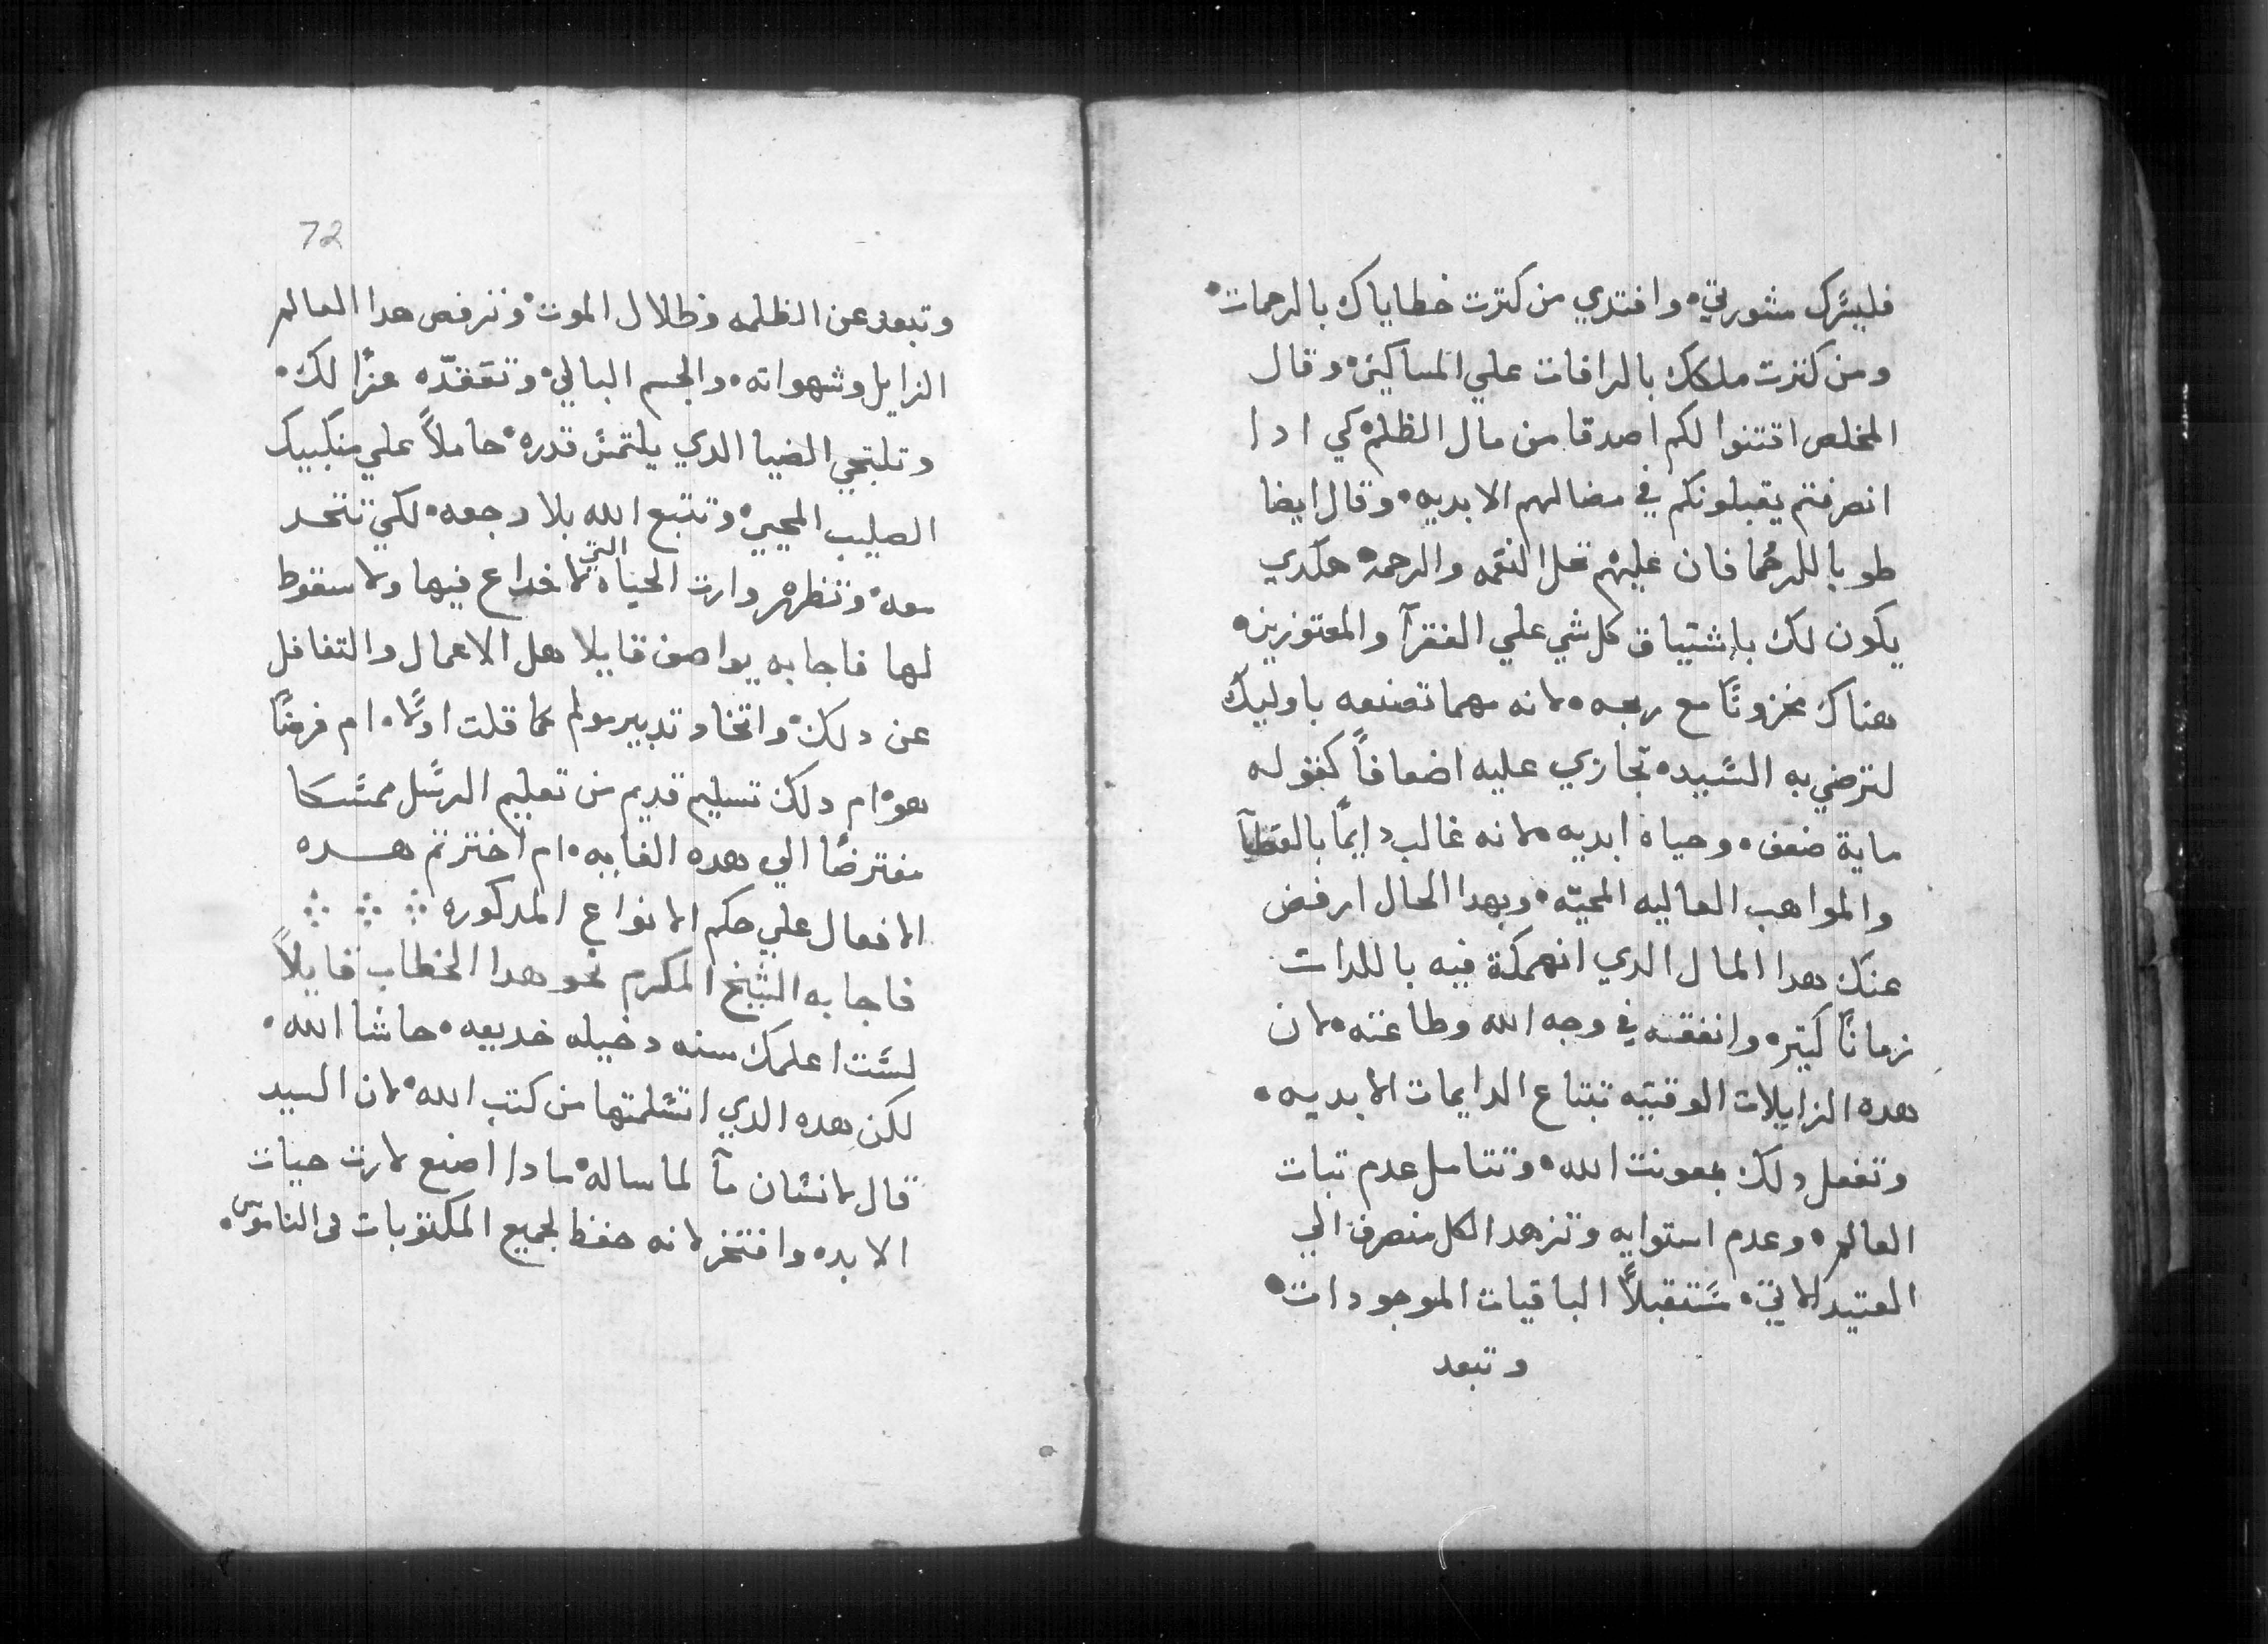 فليسرك مشورتي٠ وافتدي من كترت خطاياك بالرحمات٠
ومن كترت ملكك بالرافات علي المساكين٠ وقال
المخلص اقتنوا لكم اصدقا من مال الظلم٠ كي ادا
انصرفتم يقبلونكم في مضالهم الابديه٠ وقال ايضا
طوبا للرحما فان عليهم تحل النقمه والرحمه٠ هكدي
يكون لك باشتياق كل شي علي الفقرآ والمعتوزين٠
هناك مخزونًا مع ربحه٠ لانه مهما تصنعه باوليك
لترضي به السيد٠ تجازي عليه اضعافاً كقوله
ماية ضعف٠ وحياة ابديه٠ لانه غالب دايمًا بالعطآ
والمواهب العاليه المحيّه٠ وبهدا الحال ارفض
عنك هدا المال الدي انهمكة فيه باللدات
زمانًا كتير٠ وانفقنه في وجه الله وطاعته٠ لان
هده الزايلات الوقتيه تبتاع الدايمات الابديه٠
وتفعل دلك بمعونت الله٠ وتتامل عدم تبات
العالم٠ وعدم استوايه وتزهد الكل منصرف الي
العتيد الاتي٠ مستقبلاً الباقيات الموجودات٠
وتبعد
72
وتبعد عن الظلمه وظلال الموت٠ وترفص هدا العالم
الزايل وشهواته٠ والجسم البالي٠ وتقفدّه عزًا لك٠
وتلتجي الضيا الدي يلتمس قدره٠ حاملاً علي منكبيك
الصليب المحيي٠ وتتبع الله بلا رجعه٠ لكي تتحد
معه٠ وتظهر وارت الحياه التي لا خداع فيها ولا سقوط
لها فاجابه يواصف قايلا هل الاعمال والتغافل
عن دلك٠ واتخاد تدبير مولم كما قلت اولًا٠ ام فرضًا
هو٠ ام دلك تسليم قديم من تعليم الرسل ممسكا
مفترضًا الي هده الغايه٠ ام اخترتم هده
الافعال علي حكم الانواع المدكوره
فاجابه الشيخ المكرم نحو هدا الخطاب قايلاً
لست اعلمك سنه دخيله خديعه٠ حاشا الله٠
لكن هده الدي اتسلمتها من كتب الله٠ لان السيد
قال لانسان مآ لما ساله٠ مادا اصنع لارت حيات
الابده وافتخر لانه حفظ لجميع المكتوبات في الناموس٠